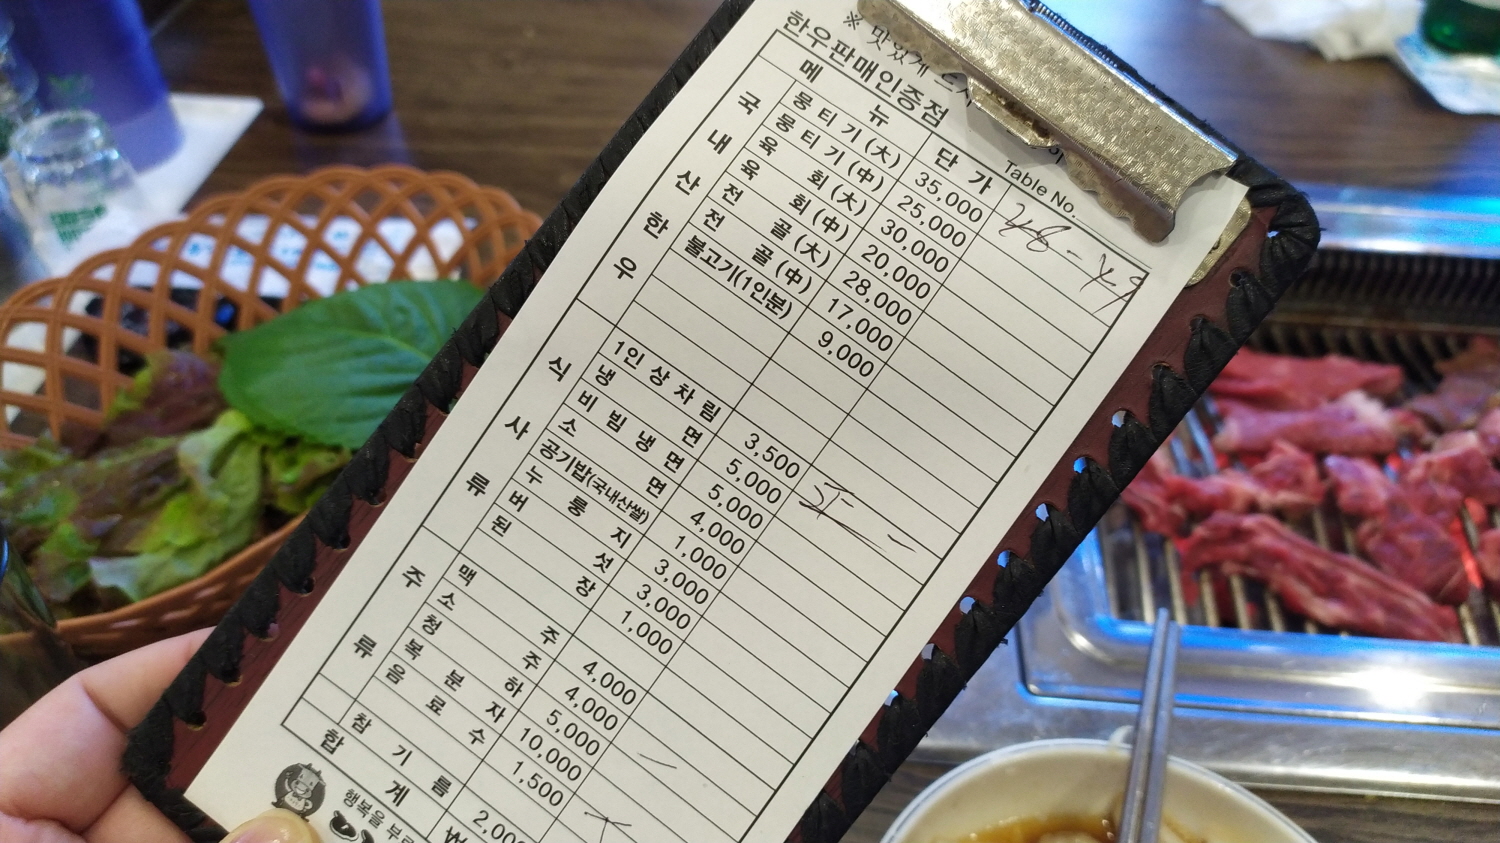 ※ 맛있게 드시
한우판매인증점
Table No.
48-49
메 뉴 단 가
국내산한우
뭉 티 기 (大) 35,000
뭉 티 기 (中) 25,000
육 회 (大) 30,000
육 회 (中) 20,000
전 골 (大) 28,000
전 골 (中) 17,000
불고기(1인분) 9,000
식사류
1인 상 차 림 3,500
냉 면 5,000
비 빔 냉 면 5,000
소 면 4,000
공기밥(국내산쌀) 1,000
누 룽 지 3,000
버 섯 3,000
된 장 1,000
주류
맥 주 4,000
소 주 4,000
청 하 5,000
복 분 자 10,000
음 료 수 1,500
참 기 름 2,000
합 계 ₩
행복을 부르